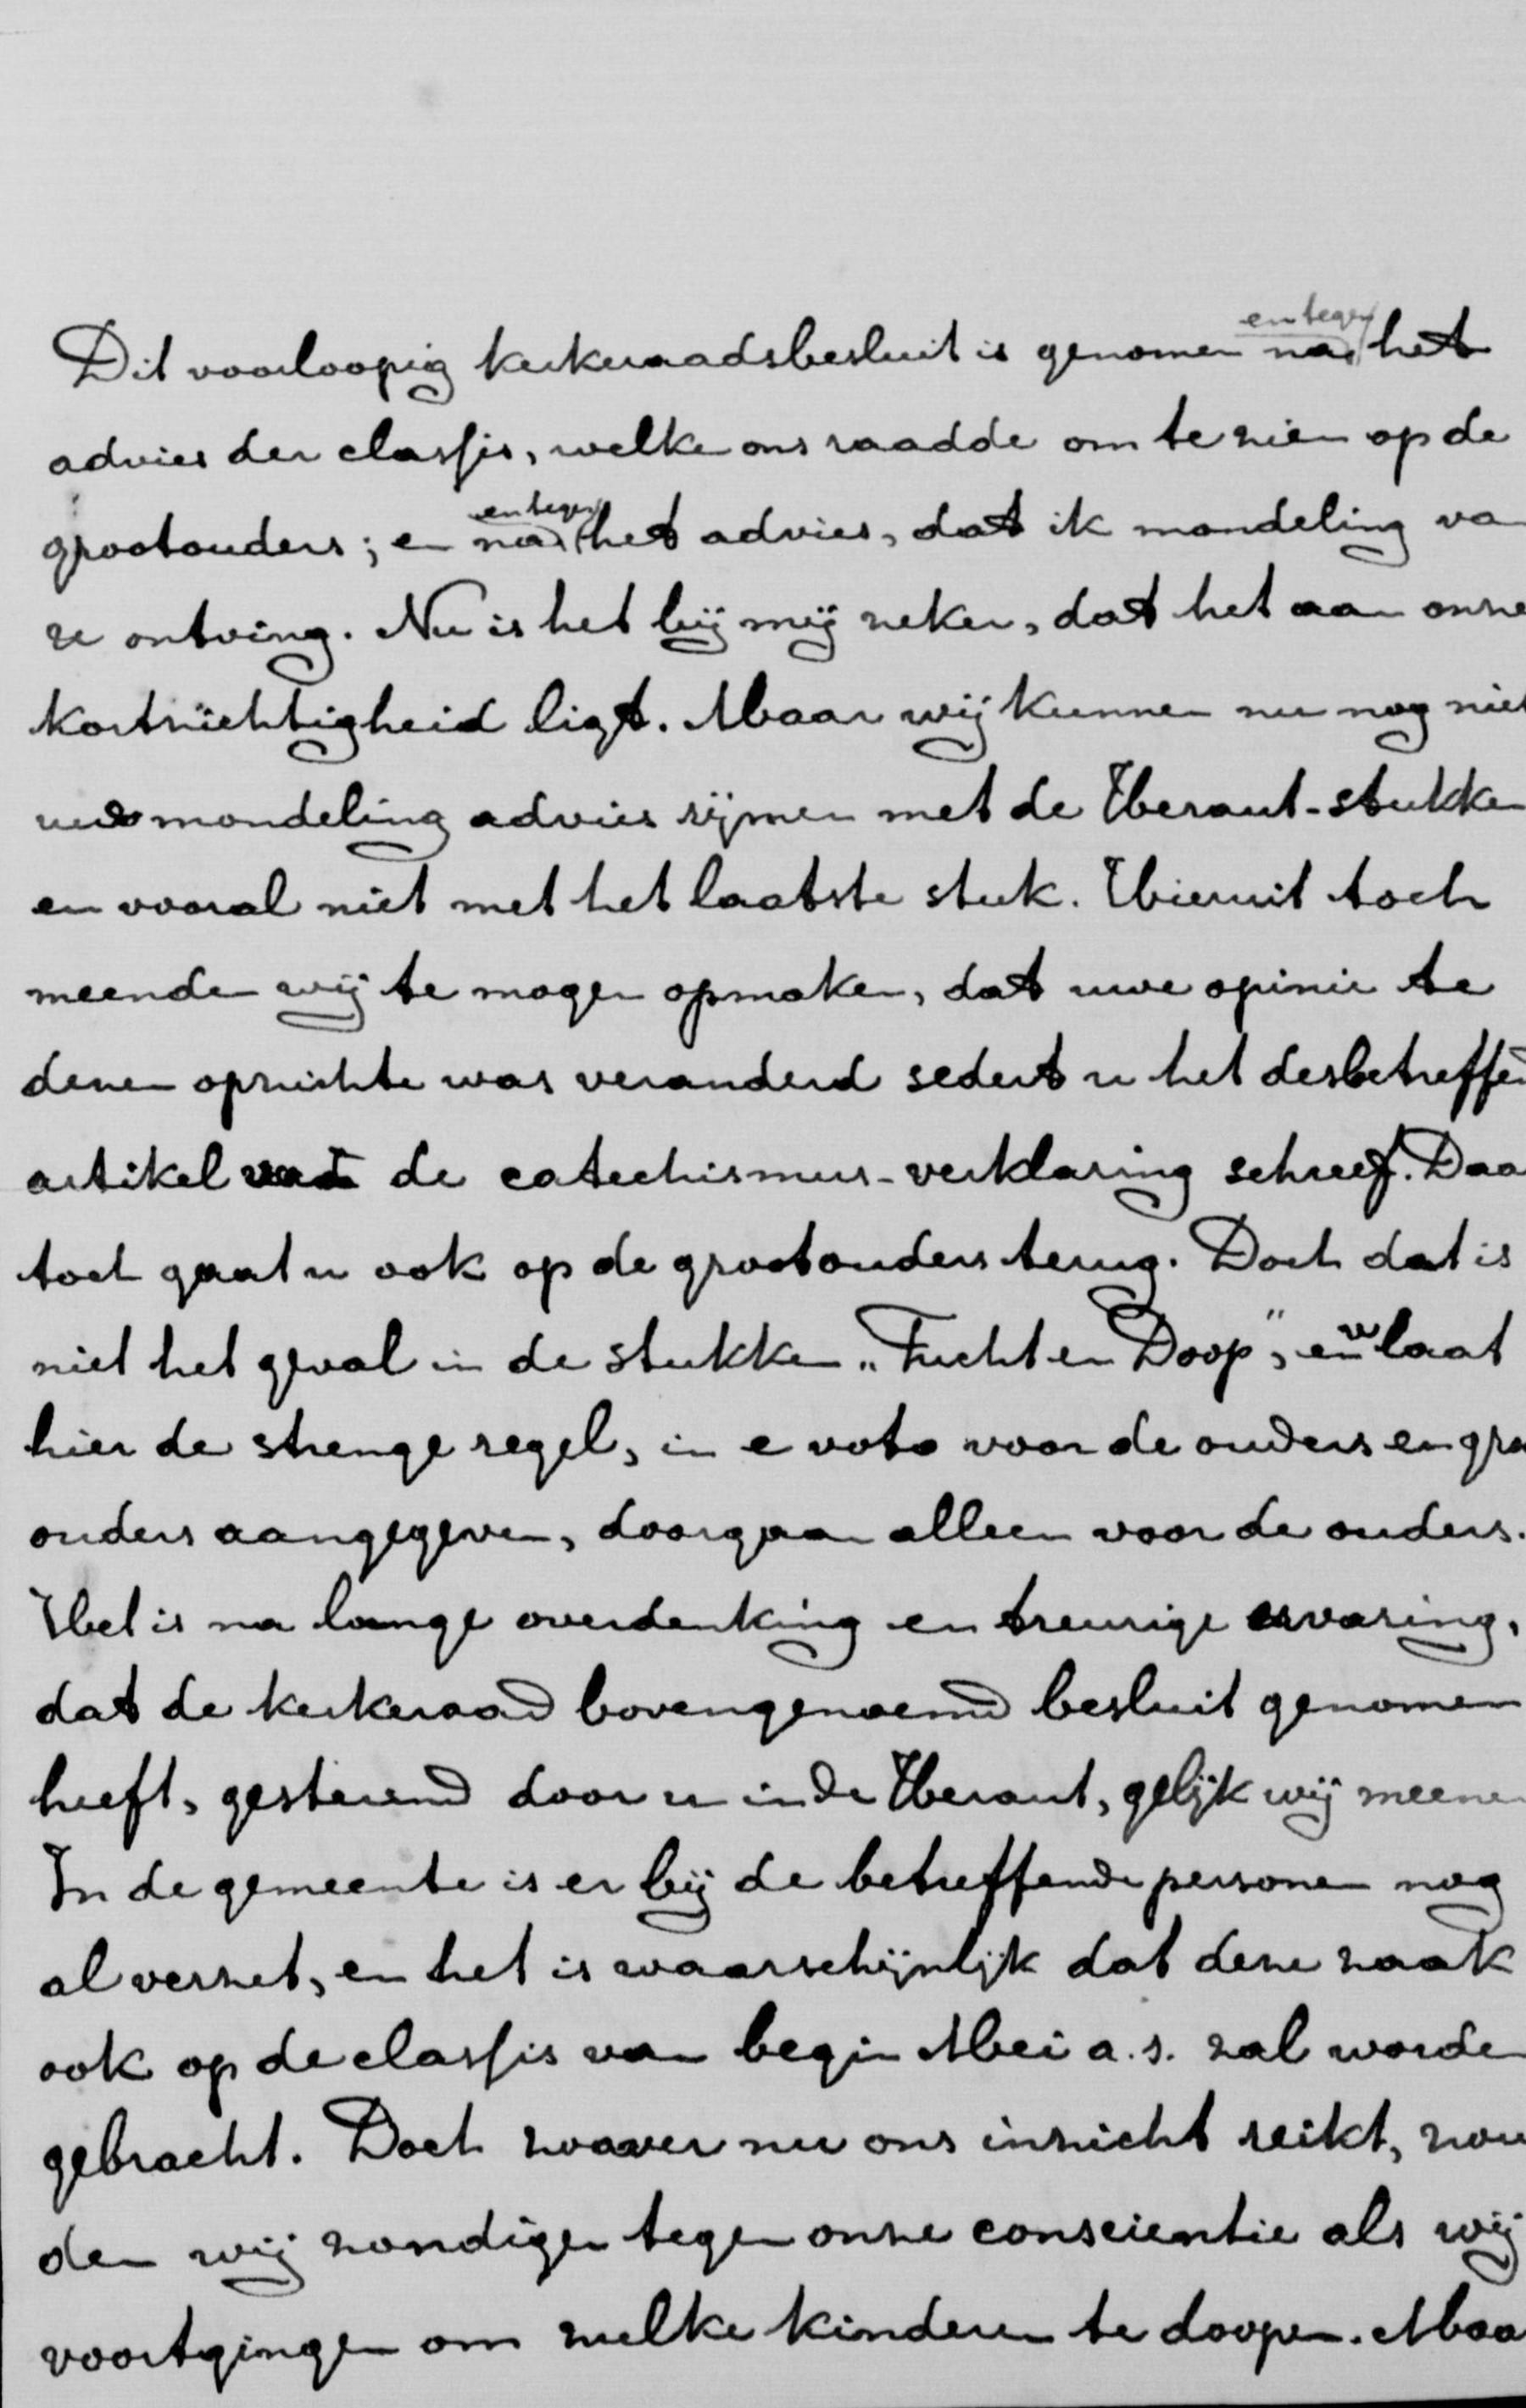 Dit voorloopig kerkeraadsbesluit is genomen na en tegen het
advies der classis, welke ons raadde om te zien op de
grootouders; en na en tegen het advies, dat ik mondeling va
u ontving. Nu is het bij mij zeker, dat het aan onze
kortzichtigheid ligt. Maar wij kunnen nu nog niet
uw mondeling advies rijmen met de Heraut-stukken
en vooral niet met het laatste stuk. Hieruit toch
meenden wij te mogen opmaken, dat uwe opinie te
dezen opzichte was veranderd sedert u het desbetreffend
artikel de catechismus-verklaring schreef. Daa
toch gaat u ook op de grootouders terug. Doch dat is
niet het geval in de stukken „Tucht en Doop", en u laat
hier de strenge regel, in e voto voor de ouders en gro
ouders aangegeven, doorgaan alleen voor de ouders.
Het is na lange overdenking en treurige ervaring,
dat de kerkeraad bovengenoemd besluit genomen
heeft, gesteund door u in de Heraut, gelijk wij meenen
In de gemeente is er bij de betreffende personen nog
al verzet, en het is waarschijnlijk dat deze zaak
ook op de classis van begin Mei a.s. zal worden
gebracht. Doch zoover nu ons inzicht reikt, zou
den wij zondigen tegen onze conscientie als wij
voortgingen om zulke kinderen te doopen. Maa